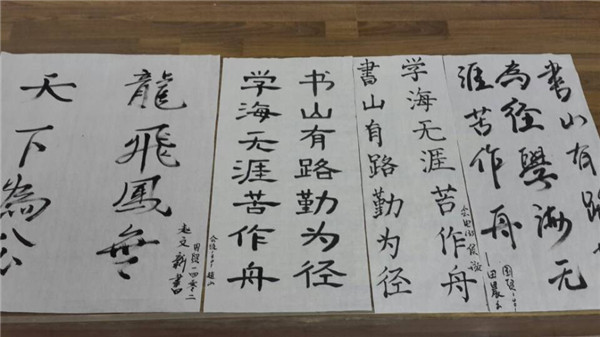 書山有路
為径學海无
涯苦作舟
学海无涯苦作舟
書山有路勤为径
书山有路勤为径
学海无涯苦作舟
龍飛鳳舞
天下為公
一四零二
赵文新書